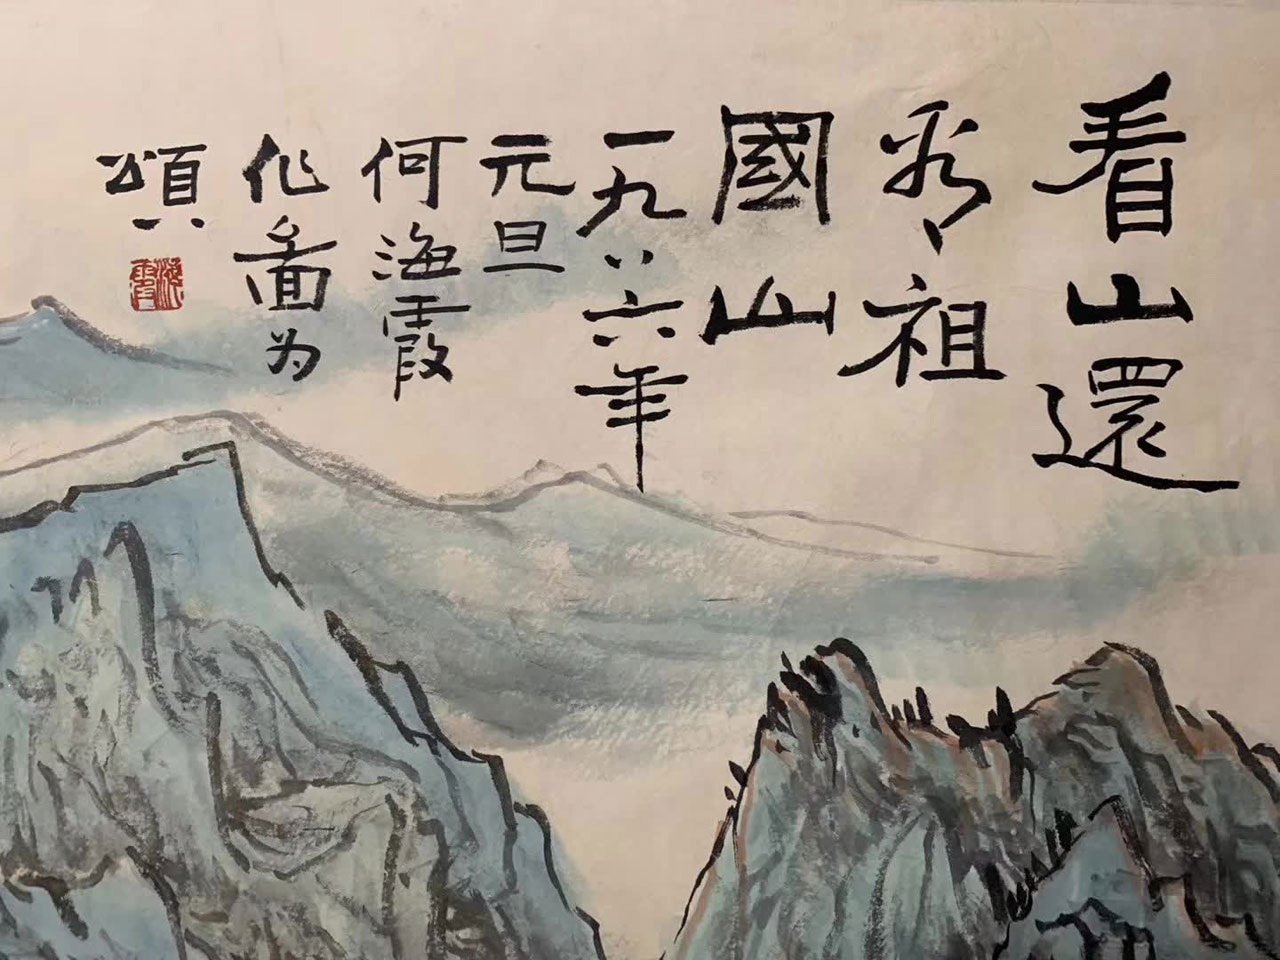 看山還
看祖
國山
一九八六年
元旦
何海霞
作圖为
頌
海霞